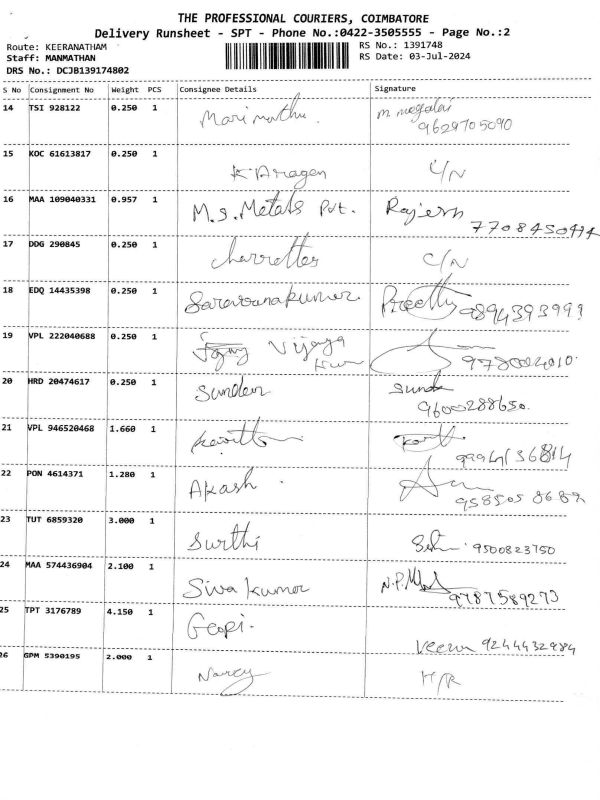 THE PROFESSIONAL COURIERS, COIMBATORE
Delivery Runsheet - SPT - Phone No.:0422-3505555 - Page No.:2
Route: KEERANATHAM
Staff: MANMATHAN
DRS No.: DCJB139174802
RS No.: 1391748
RS Date: 03-Jul-2024
S No Consignment No Weight PCS Consignee Details Signature
14 TSI 928122 0.250 1 Marimuthu.
9629705090
15 KOC 61613817 0.250 1 C/N
16 MAA 109040331 0.957 1 M.S. Metals Pvt. Rajesh
17 DDG 290845 0.250 1 C/N
18 EDQ 14435398 0.250 1 Saravanakumar Preethy
9894393999
19 VPL 222040688 0.250 1 Vijaya
20 HRD 20474617 0.250 1 Sunder
9600288650.
21 VPL 946520468 1.660 1
22 PON 4614371 1.280 1 Akash
23 TUT 6859320 3.000 1 Surthi 9500823750
24 MAA 574436904 2.100 1 Siva kumar
9787589273
25 TPT 3176789 4.150 1 Gopi.
9244432984
26 GPM 5390195 2.000 1 Nancy H/R